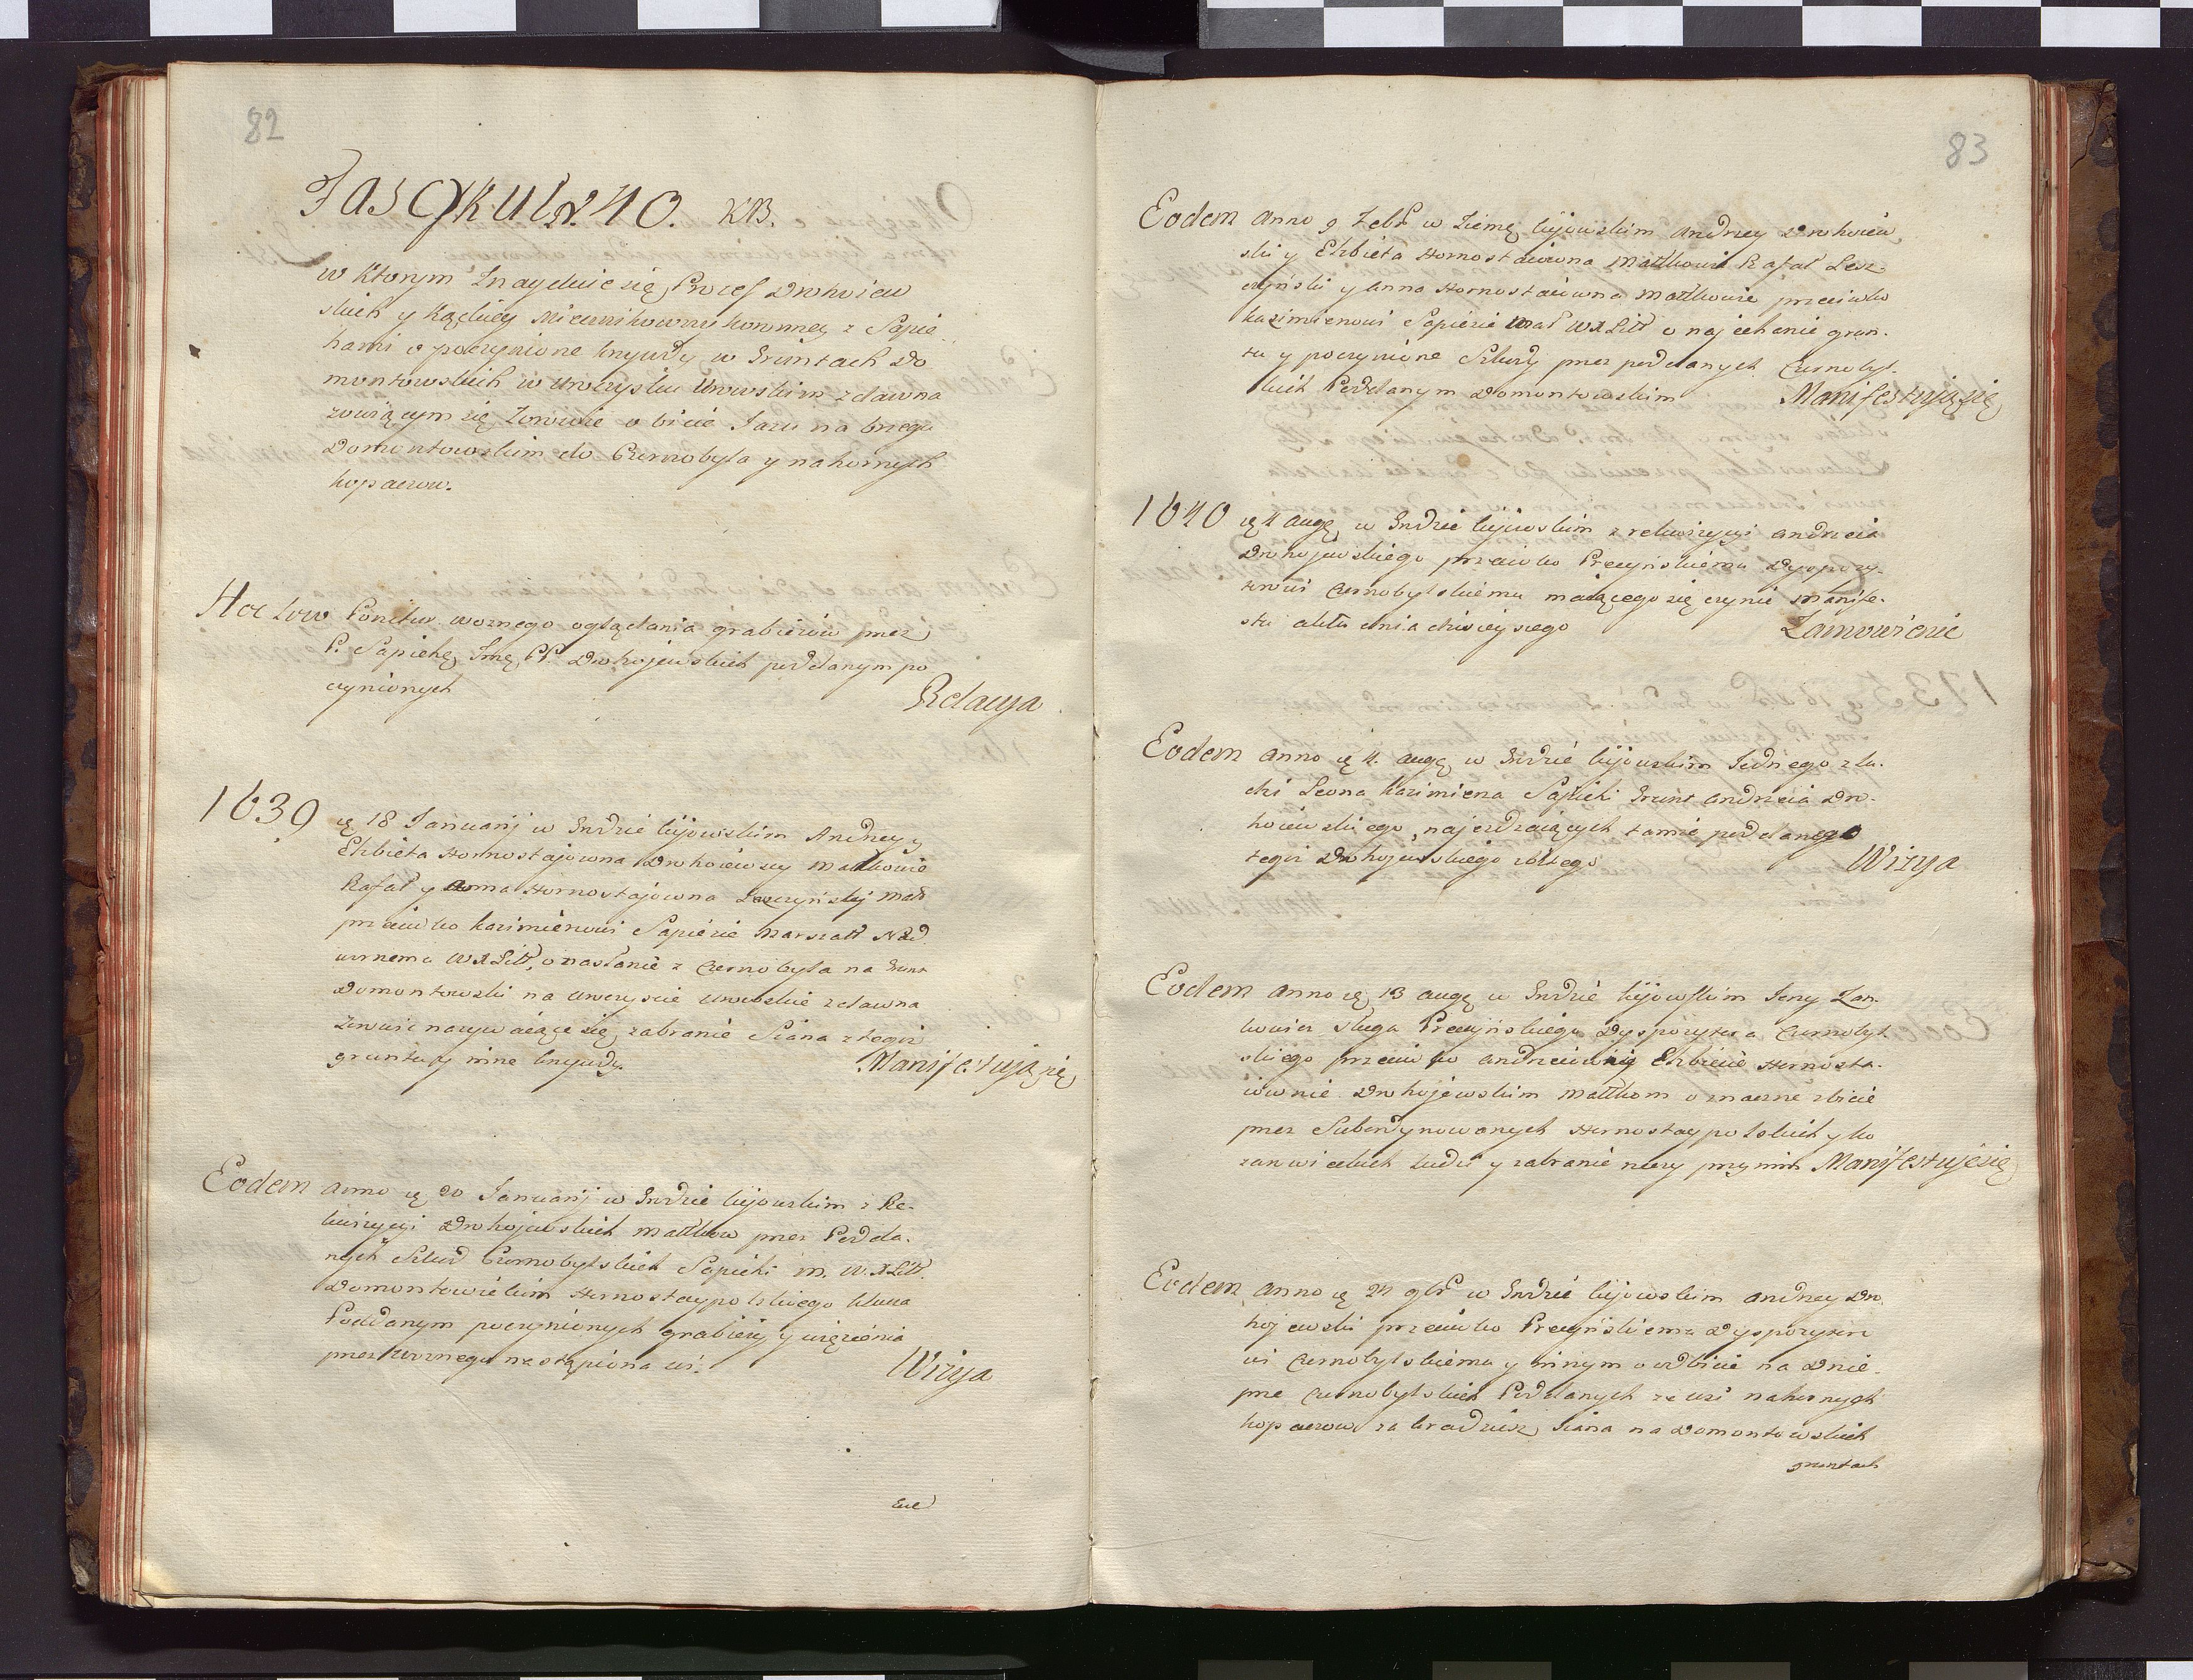 82
Fascykuł N. 40. KB.
w Ktorym Znayduie się Proces Drohoiew
skich y Kądzięy Miecznikowny koronney z Sapie
hami o poczynione krzywdy w Gruntach Do
montowskich w Uroczysku Unowskim zdawna
zowiącym się Zowiscie o bicie Jazu na brzegu
Domontowskim do Czernobyla y nahornych
kopaczow.
Hoc Loco Ponitur woznego oglądania grabieżow przez
P. Sapiehę Jmę PP. Drohojewskich poddanym po
czynionych
Relacya
1639 ię 18 Januarij w Grodzie kijowskim Andrzey y
Elżbieta Hornostajowna Drohoiewscy Małkowie
Rafał y Anna Hornostajowna Leszczyńscy Mał
przeciwko Kazimierzowi Sapiezie Marszałł Nad
wornemu WXLitt, o nasłanie z Czernobyla na Grunt
Domontowski na uroczyscie Unowskie zdawna
Zowisie nazywaiące się zabranie Siana z tegoż
gruntu y inne krzywdy.
Manifestują się
Eodem anno ię 20 Januarij w Grodzie kijowskim z Re-
kwizycyi Drohojewskich Małłkow przez Podda-
nych Szlud Czernobylskich Sapiehi M. W.XLitt.
Domontowskim Hornostaypolskiego klucza
Poddanym poczynionych grabieży y więzienia
przez woznego nastąpiona
Wizya
83
Eodem anno 9 Febr w Ziems kijowskim Andrzey Drohoiew
ski y Elżbieta Hornostaiowna Małłkowie Rafał Lesz-
czyński y Anna Hornostaiowna Małłkowie przeciwko
Kazimierzowi Sapiezie Mar WXLitt o najechanie grun-
tu y poczynione Szkody przez poddanych Czernobyl-
skich Poddanym Domontowskim
Manifestują się
1640 ię 4 aug, w Grodzie kijowskim z rekwizycyi Andrzeia
Drohojewskiego przeciwko Preczyńskiemu Dyspozy-
torowi Czernobylskiemu maiącego się czynić Manife-
stu aktu dnia dzisieyszego
Zamowienie
Eodem anno ię 4. aug, w Grodzie kijowskim Jednego szla-
chi Leona Kazimierza Sapiehi Grunt Andrzeia Dro-
hoiewskiego, najezdzaiących tamże poddanego
tegoż Drohojewskiego zbitego
Wizya
Eodem anno ię 13 aug, w Grodzie kijowskim Jerzy Zan-
kowicz Sługa Preczyńskiego Dyspozytora Czernobyl-
skiego przeciwko Andrzeiowi y Elżbiecie Hornosta-
iownie Drohojewskim Małłkom o znaczne zbicie
przez Subordynowanych Hornostaypolskich y ko
zarowickich ludzi y zabranie rzeczy przy nim Manifestuje się
Eodem anno ię 24 9br w Grodzie kijowskim Andrzey Dro
hojewski przeciwko Preczyńskiemu Dyspozytoro
wi Czernobylskiemu y innym o odbicie na Dnie-
prze Czernobylskich Poddanych ze wsi nahornych
kopaczow za kradziesz Siana na Domontowskich
gruntach